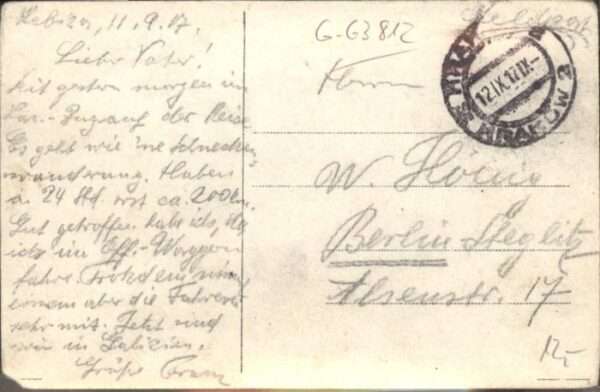 11.9.17.
Lieber Vater!
Seit gestern morgen im
Laz.-Zug auf der Reise
Es geht wie 'ne Schnecken
wanderung. Haben
a. 24 Std. erst ca. 200 km.
Gut getroffen habe ich, da
ich im Off.-Waggon
fahre. Trotzdem nimmt
einem aber die Fahrerei
sehr mit. Jetzt sind
wir in Galizien.
Grüße Franz
G-G3812
Feldpost
Herrn
W. König
Berlin-Steglitz
Alsenstr. 17
KRAKÓW 2
12.IX.17.IX-
12,-